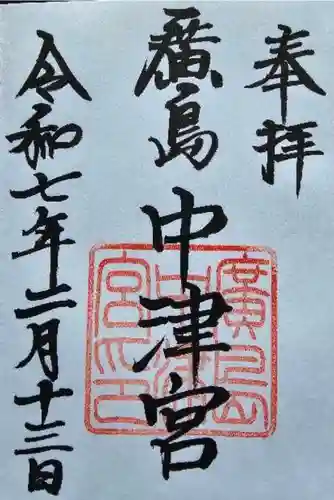 奉拝
廣島中津宮
令和七年二月十三日
廣島
中津
宮印